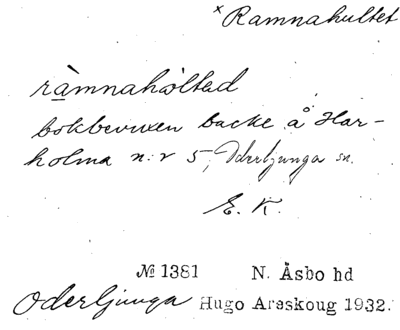 × Ramnahultet
ràmnahòltəd
bokbevuxen backe å Har-
holma n:r 5, Oderljunga sn.
E. K.
№ 1381 N. Åsbo hd
Oderljunga Hugo Areskoug 1932.